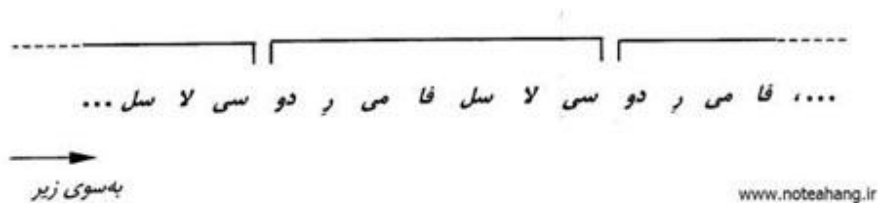 ...، فا می رِ دو سی لا سل فا می رِ دو سی لا سل ...
به‌سوی زیر
www.noteahang.ir